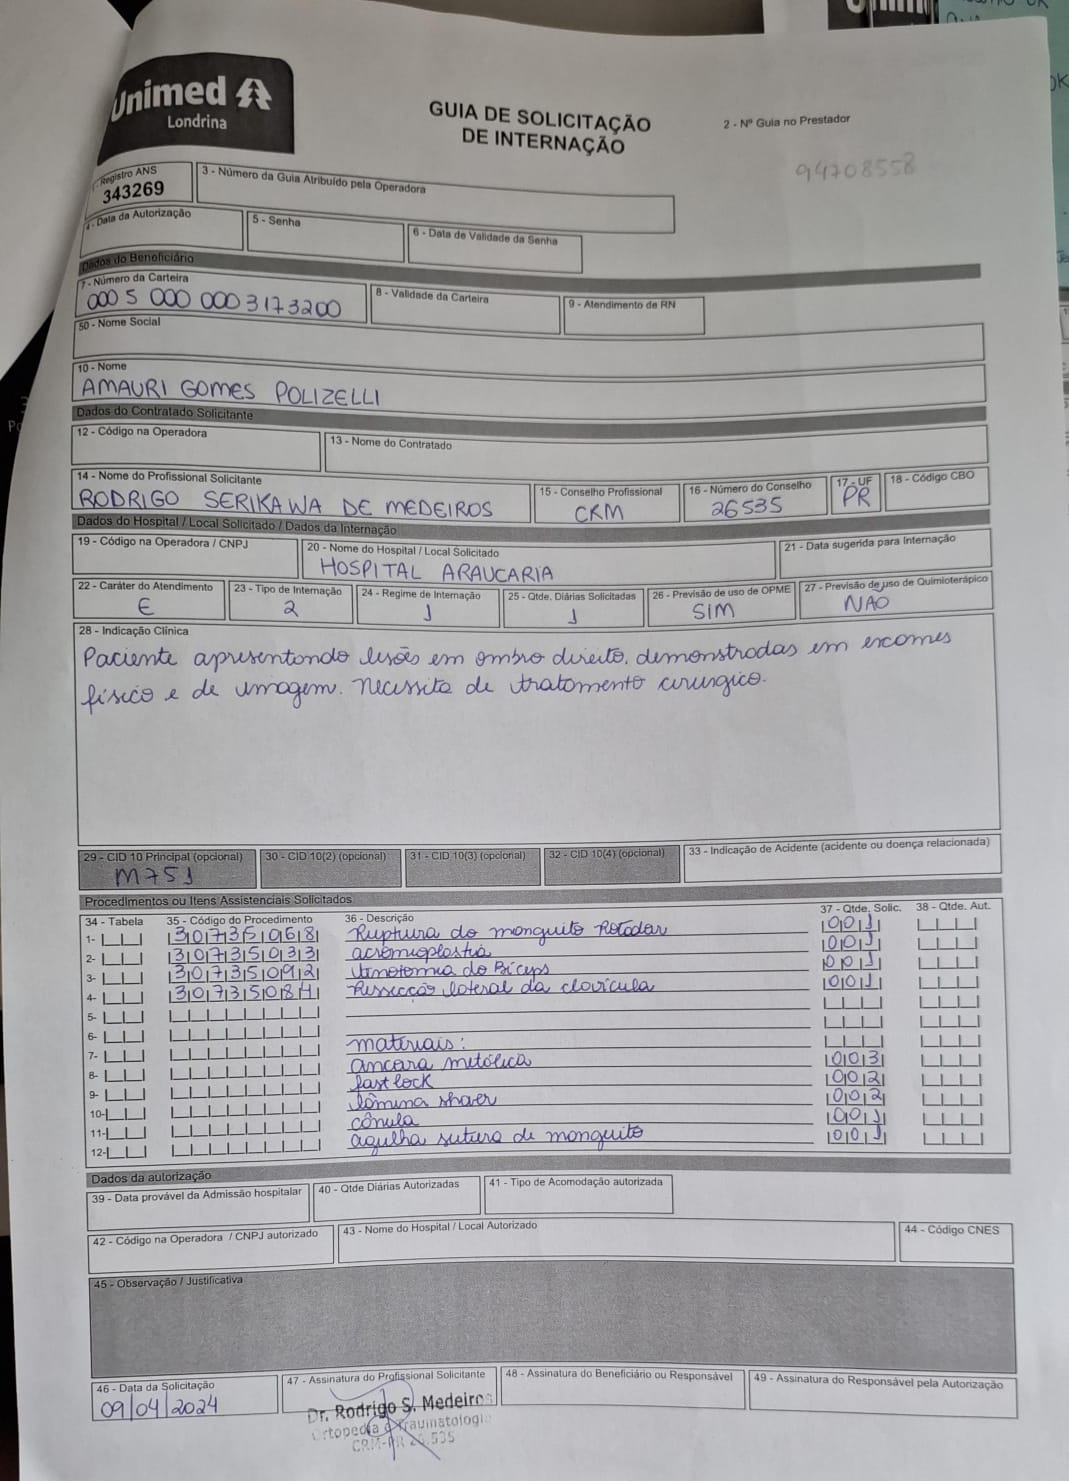 Unimed
Londrina
GUIA DE SOLICITAÇÃO
DE INTERNAÇÃO
2 - Nº Guia no Prestador
94708558
Registro ANS
343269
3 - Número da Guia Atribuído pela Operadora
4 - Data da Autorização
5 - Senha
6 - Data de Validade da Senha
Dados do Beneficiário
7 - Número da Carteira
0005 000 000 3173200
8 - Validade da Carteira
9 - Atendimento de RN
50 - Nome Social
10 - Nome
AMAURI GOMES POLIZELLI
Dados do Contratado Solicitante
12 - Código na Operadora
13 - Nome do Contratado
14 - Nome do Profissional Solicitante
RODRIGO SERIKAWA DE MEDEIROS
15 - Conselho Profissional
CRM
16 - Número do Conselho
26535
17 - UF
PR
18 - Código CBO
Dados do Hospital / Local Solicitado / Dados da Internação
19 - Código na Operadora / CNPJ
20 - Nome do Hospital / Local Solicitado
HOSPITAL ARAUCARIA
21 - Data sugerida para Internação
22 - Caráter do Atendimento
E
23 - Tipo de Internação
2
24 - Regime de Internação
1
25 - Qtde. Diárias Solicitadas
1
26 - Previsão de uso de OPME
SIM
27 - Previsão de uso de Quimioterápico
NAO
28 - Indicação Clínica
Paciente apresentando lesões em ombro direito, demonstradas em exames
físico e de imagem. Necessita de tratamento cirurgico.
29 - CID 10 Principal (opcional)
M751
30 - CID 10(2) (opcional)
31 - CID 10(3) (opcional)
32 - CID 10(4) (opcional)
33 - Indicação de Acidente (acidente ou doença relacionada)
Procedimentos ou Itens Assistenciais Solicitados
34 - Tabela 35 - Código do Procedimento 36 - Descrição 37 - Qtde. Solic. 38 - Qtde. Aut.
1- 30735068 Ruptura do manguito Rotador 001
2- 30735033 acromioplastia 001
3- 30735092 tenotomia do Biceps 001
4- 30735084 Ressecção lateral da clavicula 001
5-
6-
7- materiais:
8- ancora metálica 003
9- fast lock 002
10- lâmina shaver 002
11- cânula 001
12- agulha sutura de manguito 001
Dados da autorização
39 - Data provável da Admissão hospitalar
40 - Qtde Diárias Autorizadas
41 - Tipo de Acomodação autorizada
42 - Código na Operadora / CNPJ autorizado
43 - Nome do Hospital / Local Autorizado
44 - Código CNES
45 - Observação / Justificativa
46 - Data da Solicitação
09/04/2024
47 - Assinatura do Profissional Solicitante
Dr. Rodrigo S. Medeiros
Ortopedia e Traumatologia
CRM-PR 26.535
48 - Assinatura do Beneficiário ou Responsável
49 - Assinatura do Responsável pela Autorização